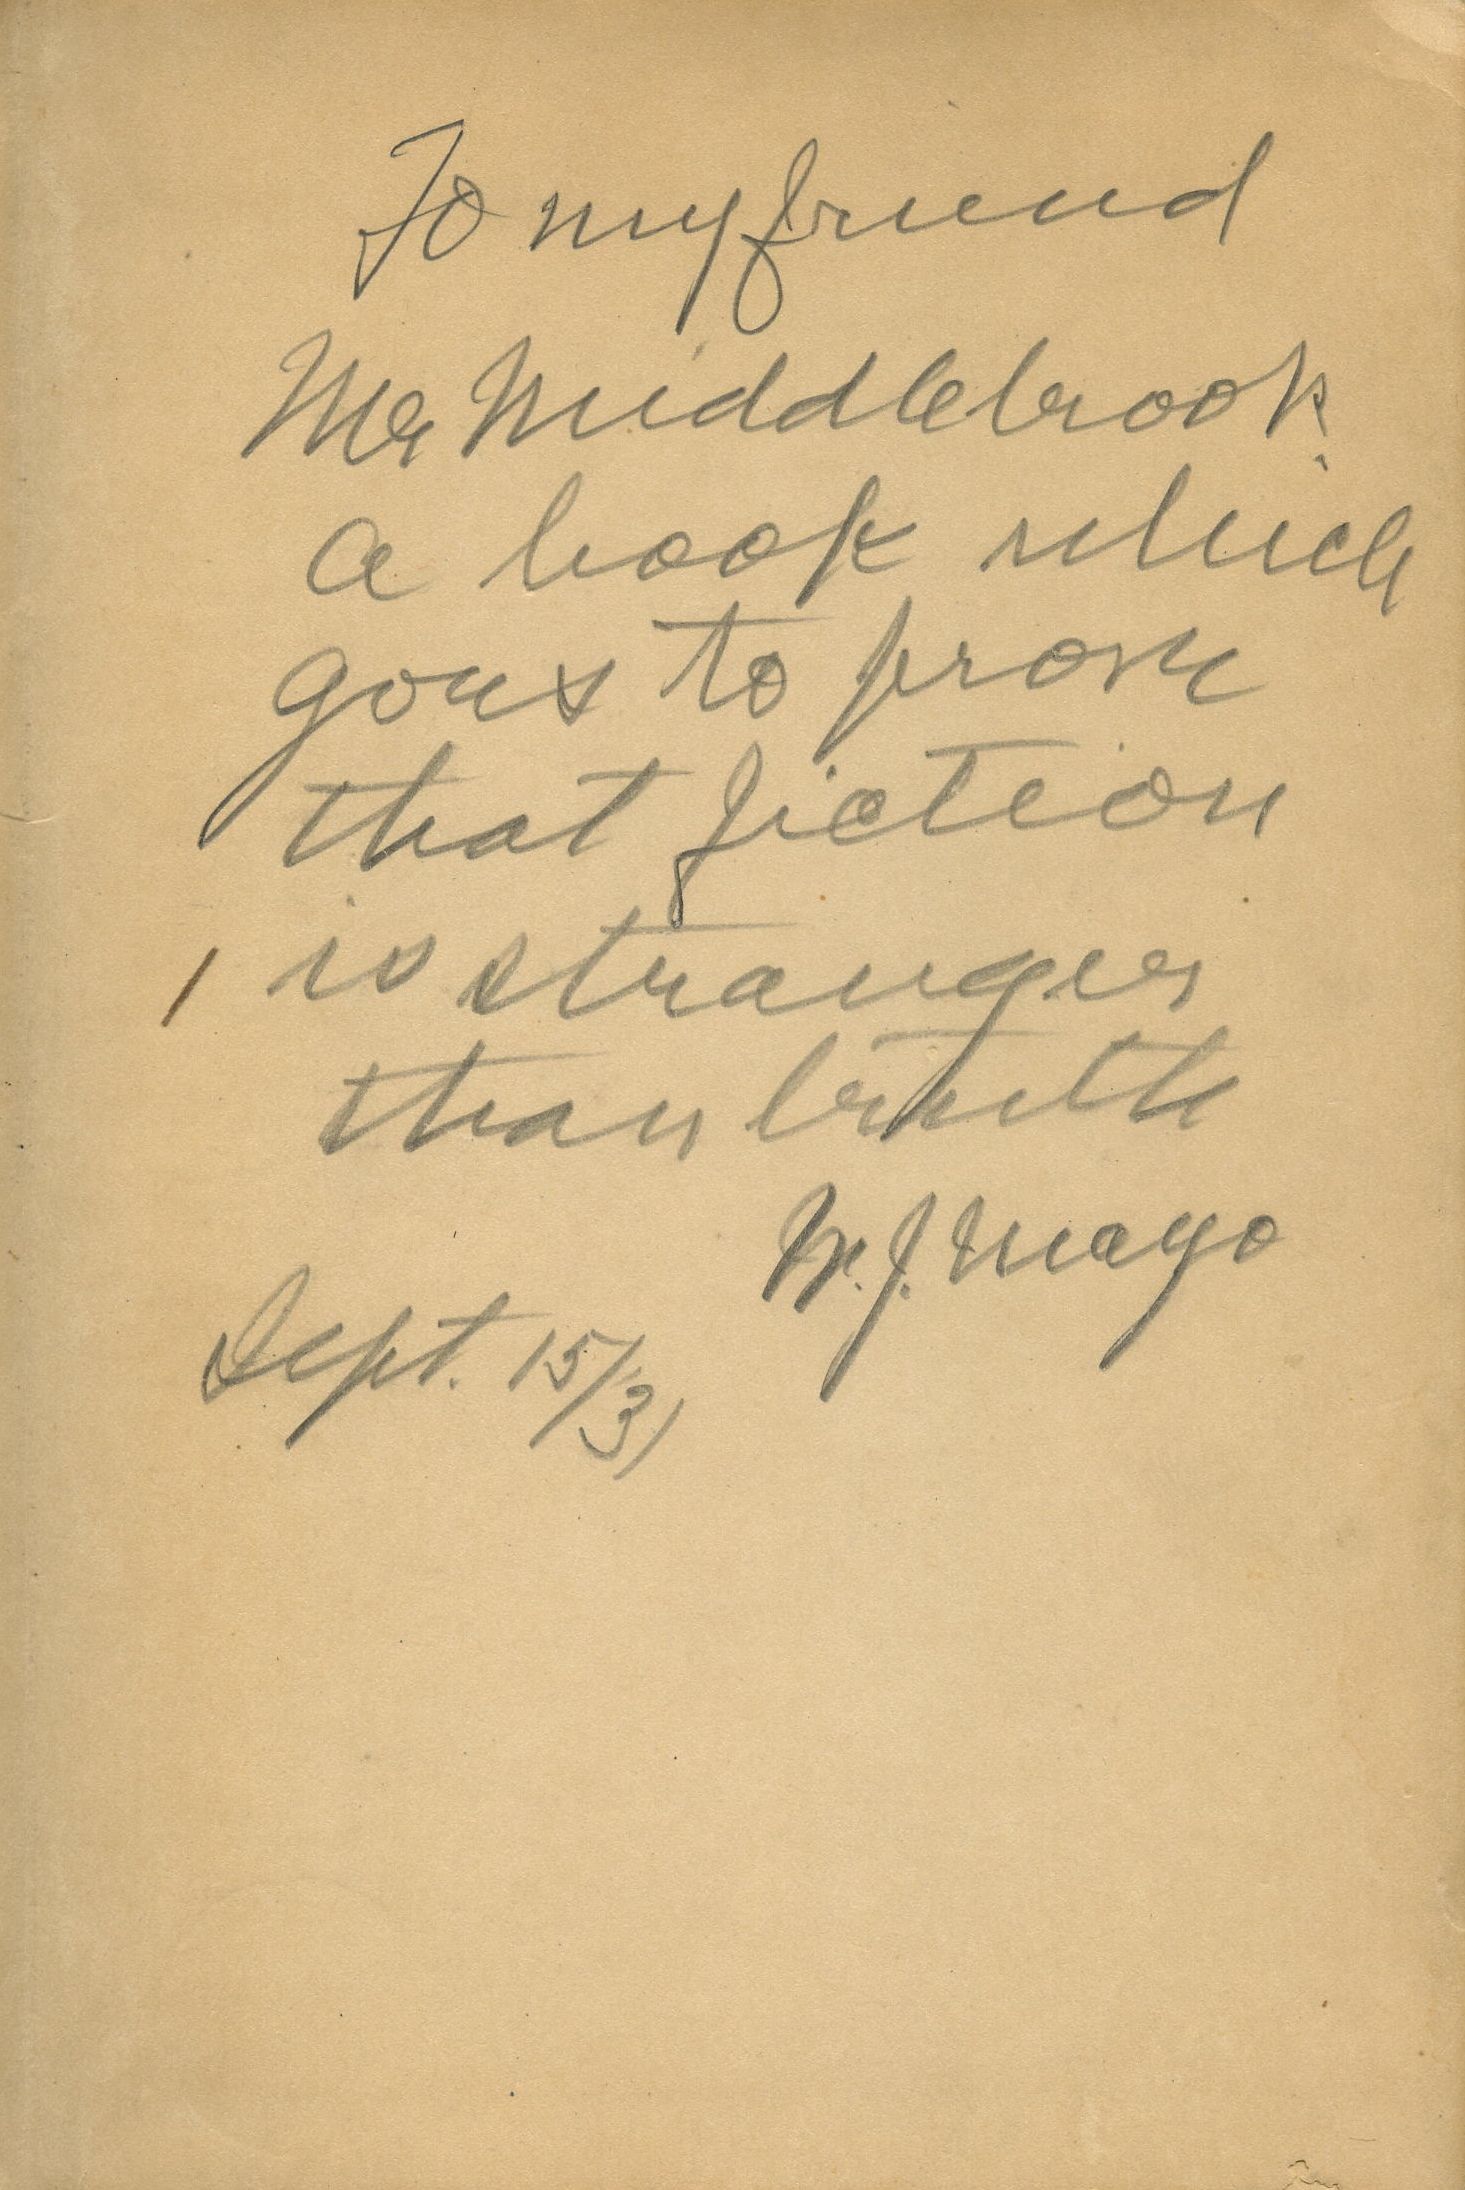 To my friend
Mr Middlebrook
a book which
goes to prove
that fiction
is stranger
than truth
W. J. Mayo
Sept. 15/31